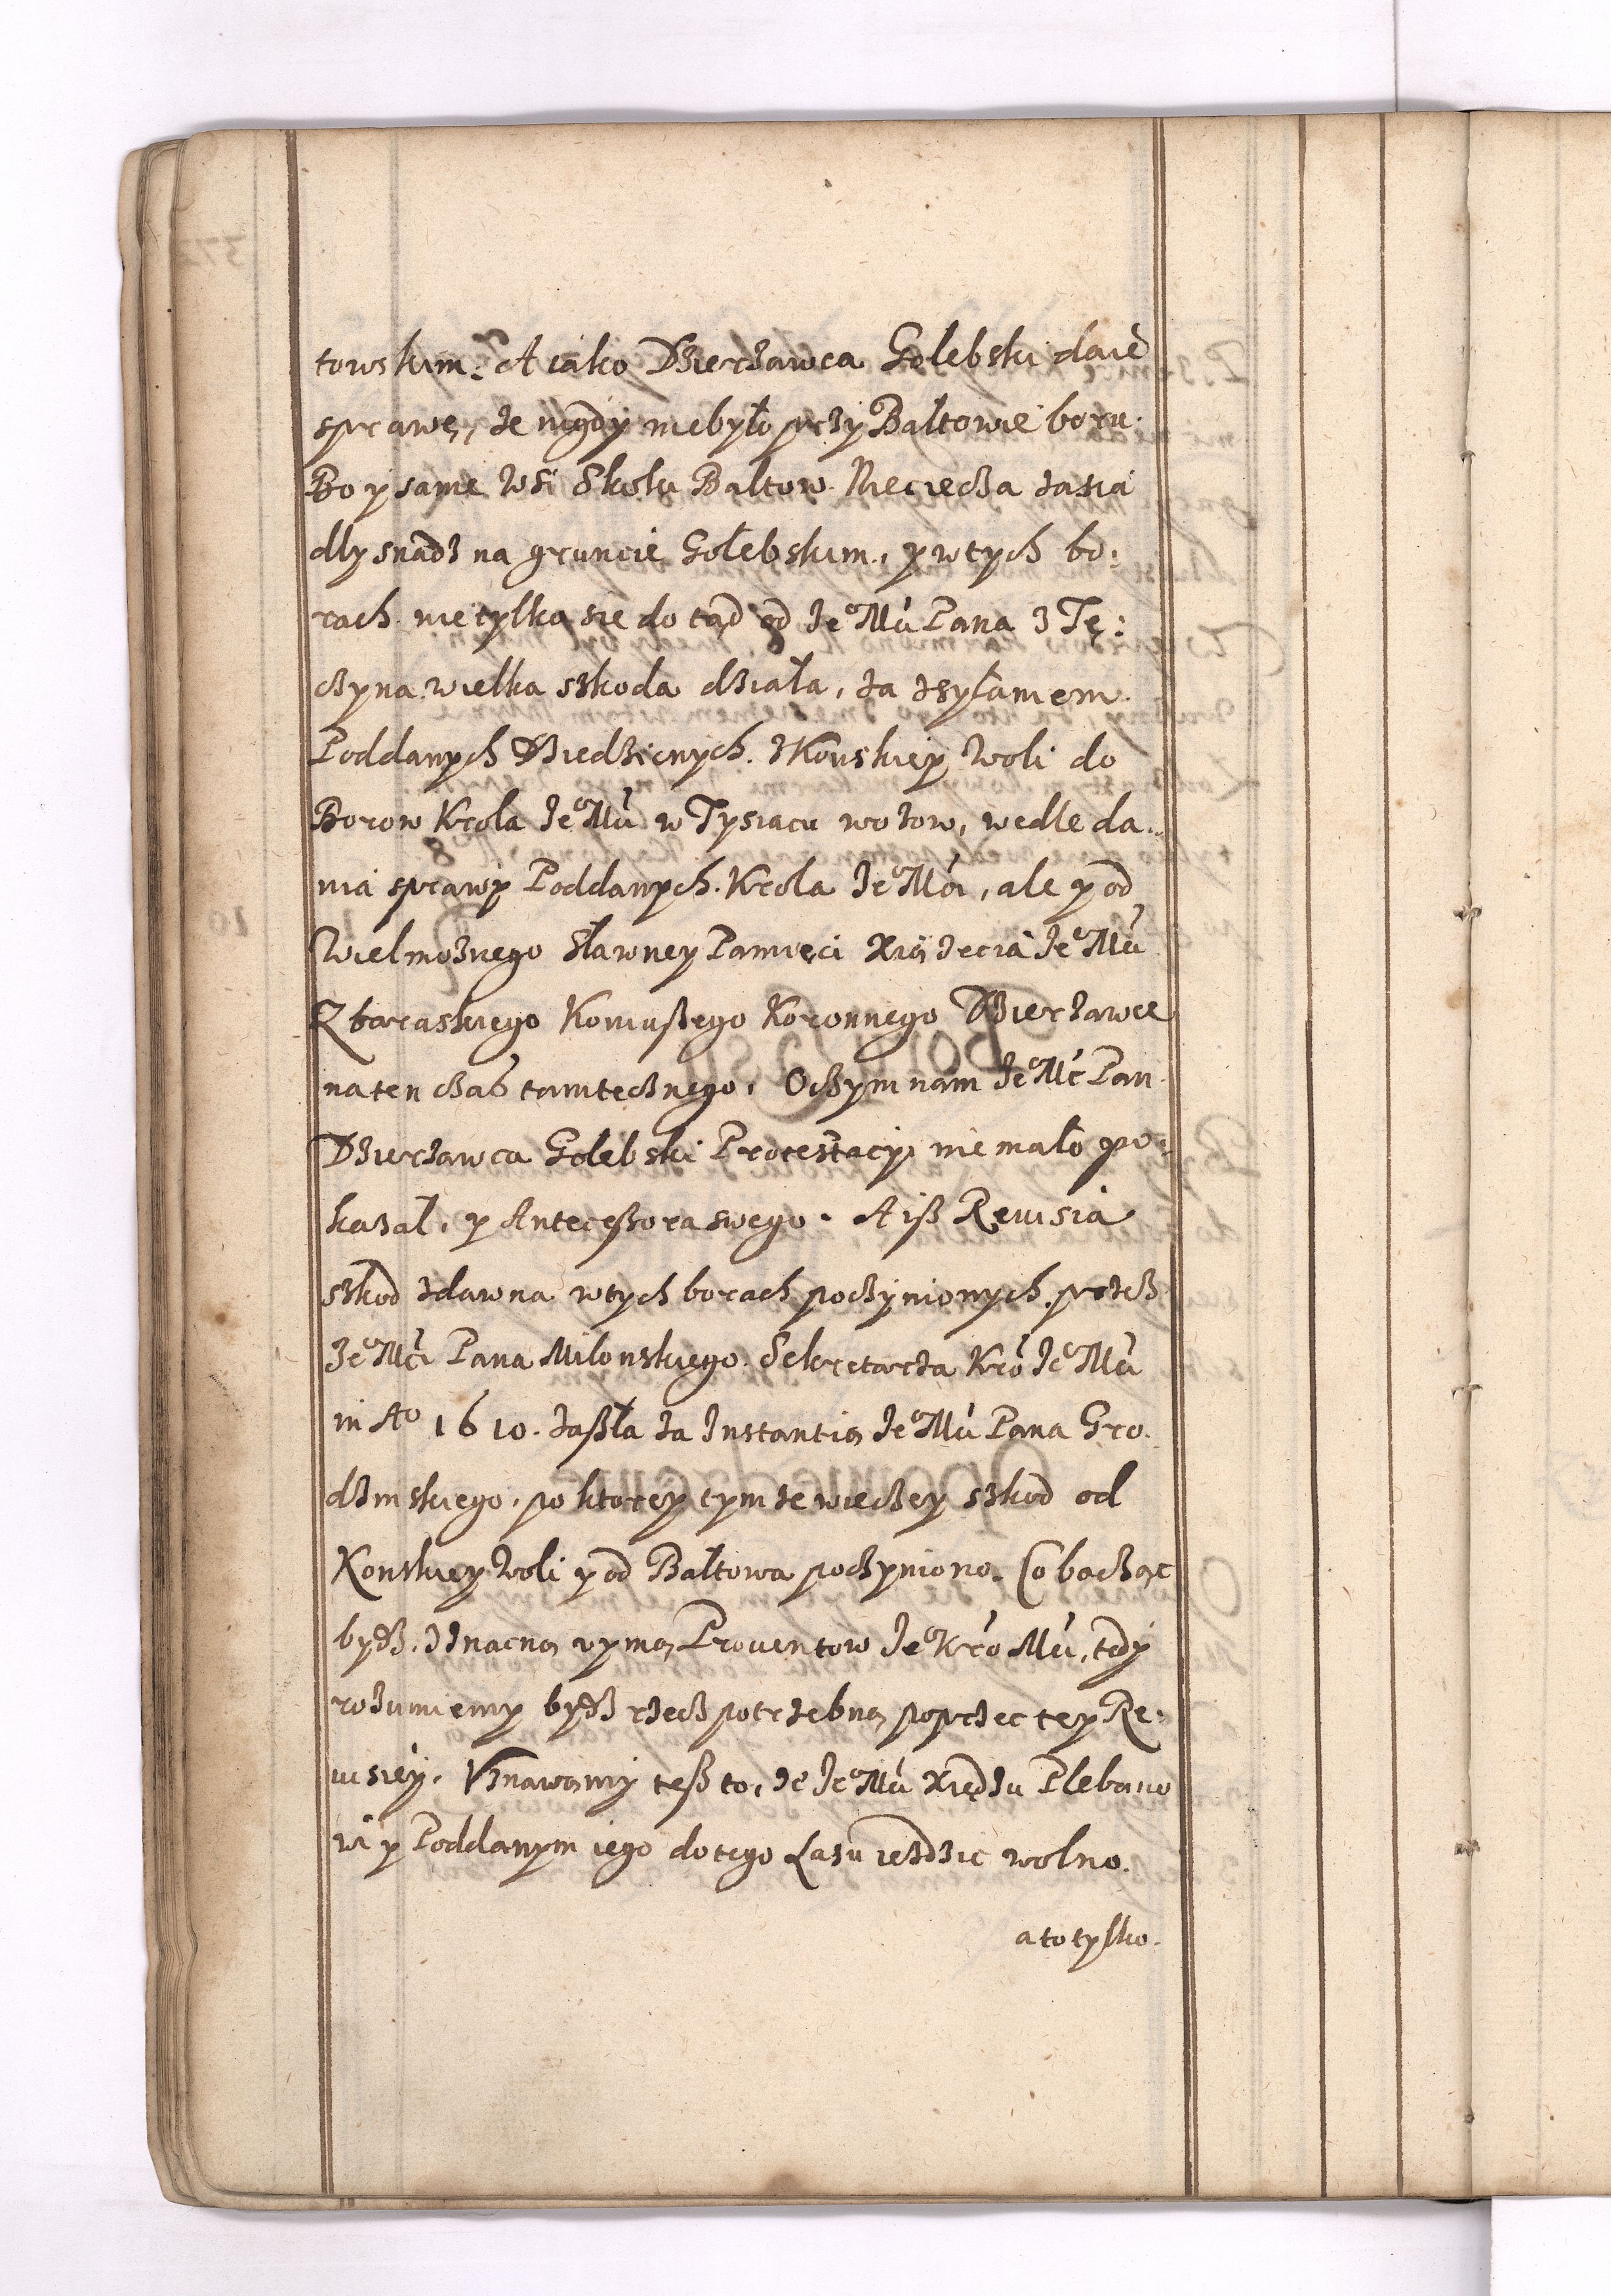 towskim. A iako Dzierżawca Golebski daie
sprawę, że nigdy niebyło przy Bałtowie boru.
Bo y same wsi Skoki Bałtow. Nieciecza zasia
dły snadź na gruncie Golebskim, y w tych bo:
rach nie tylko sie do tąd od Je° Mći Pana z Tę:
czyna wielka szkoda działa, za zsyłaniem
Poddanych Dziedzicnych. z Konskiey Woli do
Borow Krola Je° Mći w Tysiącu wozow, wedle da-
nia sprawy Poddanych. Krola Je° Mći, ale y od
Wielmożnego Sławney Pamięci Xiążecia Je° Mći
Zbaraskiego Koniußego Koronnego Dzierżawce
na ten czas tamtecznego. O czym nam Je° Mć Pan
Dzierżawca Golebski Protestacyi nie mało po-
kazał, y Antecessora swego. A iß Reuisia
szkod zdawna w tych borach poczynionych. przecz
Je° Mći Pana Milonskiego. Sekretarza Kró Je° Mći
in A° 1610. zaßła za Instantią Je° Mći Pana Gro-
dzinskiego, po ktorey tym że wieczey szkod od
Konskiey Woli y od Bałtowa poczyniono. Co bacząc
bydź. z znaczną vymą Prouentow Je° Kró Mći, tedy
rozumiemy bydź rzecz potrzebną poprzec tey Re-
uisiey. Vznawamy teß to, że Je° Mći Xiędzu Plebano
wi y Poddanym iego do tego Lasu ieździc wolno.
a to tylko.